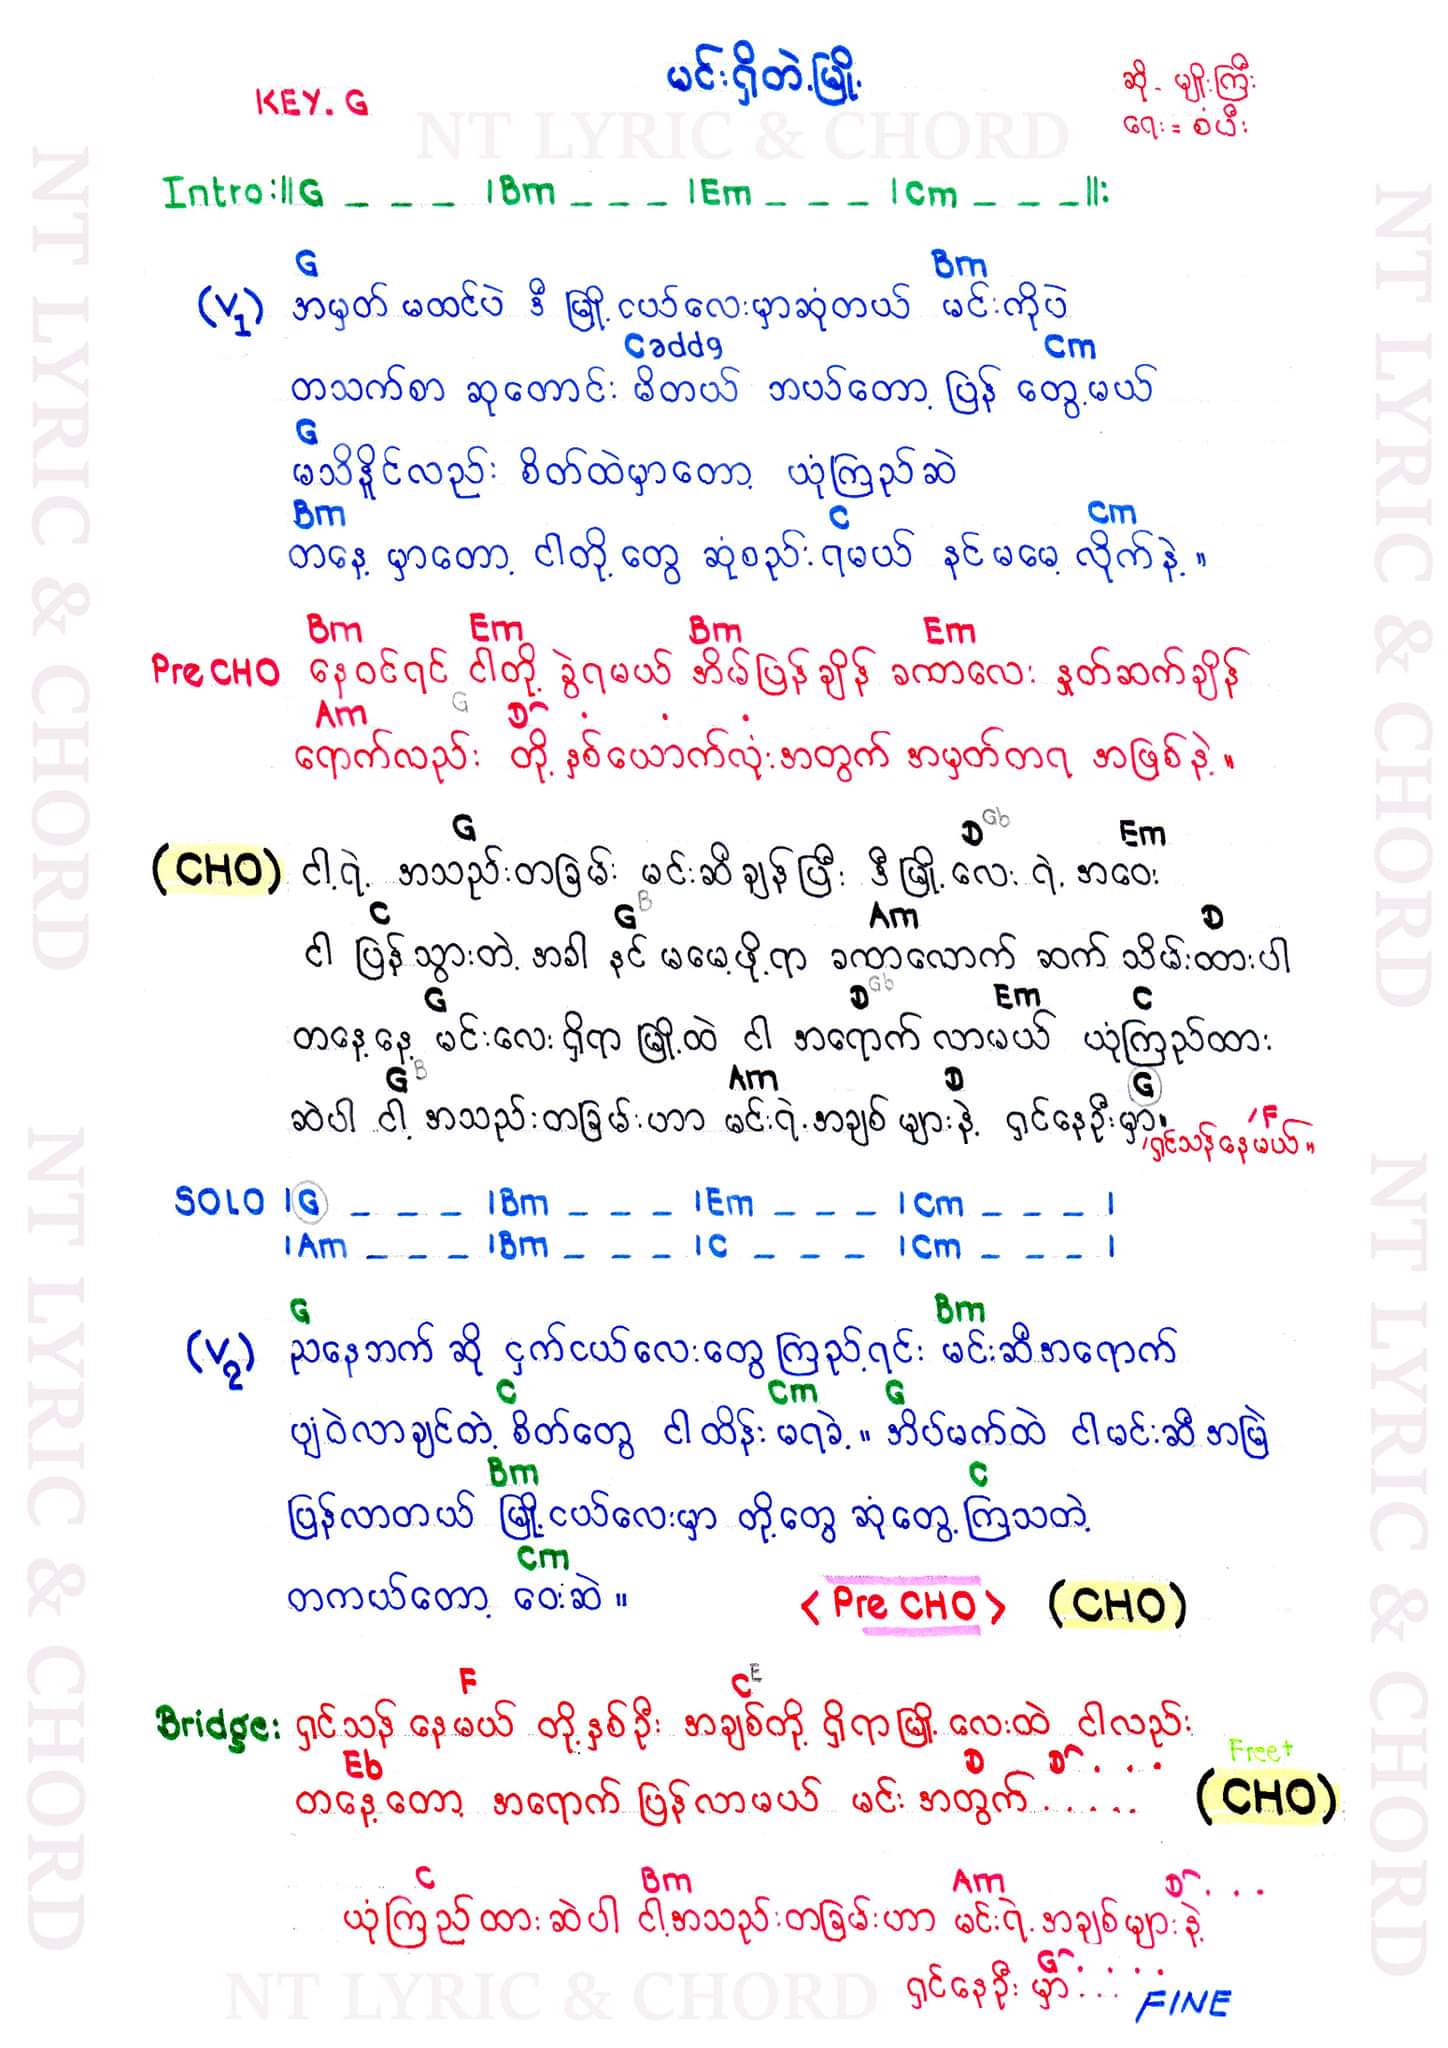 မင်းရှိတဲ့မြို့
KEY. G
ဆို - မျိုးကြီး
ရေး = စံပီး
NT LYRIC & CHORD
Intro:||G _ _ _ |Bm _ _ _ |Em _ _ _ |Cm _ _ _||:
G Bm
(V1) အမှတ် မထင်ပဲ ဒီ မြို့ငယ်လေးမှာဆုံတယ် မင်းကိုပဲ
Cadd9 Cm
တသက်စာ ဆုတောင်း မိတယ် ဘယ်တော့ ပြန် တွေ့မယ်
G
မသိနိူင်လည်း စိတ်ထဲမှာတော့ ယုံကြည်ဆဲ
Bm C Cm
တနေ့ မှာတော့ ငါတို့တွေ ဆုံစည်းရမယ် နင်မမေ့ လိုက်နဲ့။
Bm Em Bm Em
Pre CHO နေဝင်ရင် ငါတို့ ခွဲရမယ် အိမ်ပြန်ချိန် ခဏလေး နှုတ်ဆက်ချိန်
Am G D . . .
ရောက်လည်း တို့နှစ်ယောက်လုံးအတွက် အမှတ်တရ အဖြစ်နဲ့။
G D Gb Em
(CHO) ငါ့ရဲ့ အသည်းတခြမ်း မင်းဆီချန်ပြီး ဒီမြို့လေး ရဲ့ အဝေး
C G B Am D
ငါ ပြန်သွားတဲ့အခါ နင် မမေ့ဖို့ရာ ခဏလောက် ဆက် သိမ်းထားပါ
G D Gb Em C
တနေ့နေ့ မင်းလေးရှိရာ မြို့ထဲ ငါ အရောက်လာမယ် ယုံကြည်ထား
G B Am D G
ဆဲပါ ငါ့ အသည်းတခြမ်းဟာ မင်းရဲ့အချစ်များနဲ့ ရှင်နေဦးမှာ။
/F
/ရှင်သန်နေမယ်။
SOLO |G _ _ _ |Bm _ _ _ |Em _ _ _ |Cm _ _ _ |
|Am _ _ _ |Bm _ _ _ |C _ _ _ |Cm _ _ _ |
G Bm
(V2) ညနေဘက်ဆို ငှက်ငယ်လေးတွေကြည့်ရင်း မင်းဆီအရောက်
C Cm G
ပျံဝဲလာချင်တဲ့ စိတ်တွေ ငါထိန်းမရခဲ့။ အိပ်မက်ထဲ ငါမင်းဆီအမြဲ
Bm C
ပြန်လာတယ် မြို့ငယ်လေးမှာ တို့တွေ ဆုံတွေ့ကြသတဲ့
Cm
တကယ်တော့ ဝေးဆဲ။ < Pre CHO > (CHO)
F C E
Bridge: ရှင်သန် နေမယ် တို့နှစ်ဦး အချစ်တို့ ရှိရာမြို့လေးထဲ ငါလည်း
Eb D D . . . Free+
တနေ့တော့ အရောက်ပြန်လာမယ် မင်းအတွက်..... (CHO)
C Bm Am D . . .
ယုံကြည်ထားဆဲပါ ငါ့အသည်းတခြမ်းဟာ မင်းရဲ့အချစ်များနဲ့
G . . . .
ရှင်နေဦးမှာ... FINE
NT LYRIC & CHORD
NT LYRIC & CHORD
NT LYRIC & CHORD
NT LYRIC & CHORD
NT LYRIC & CHORD